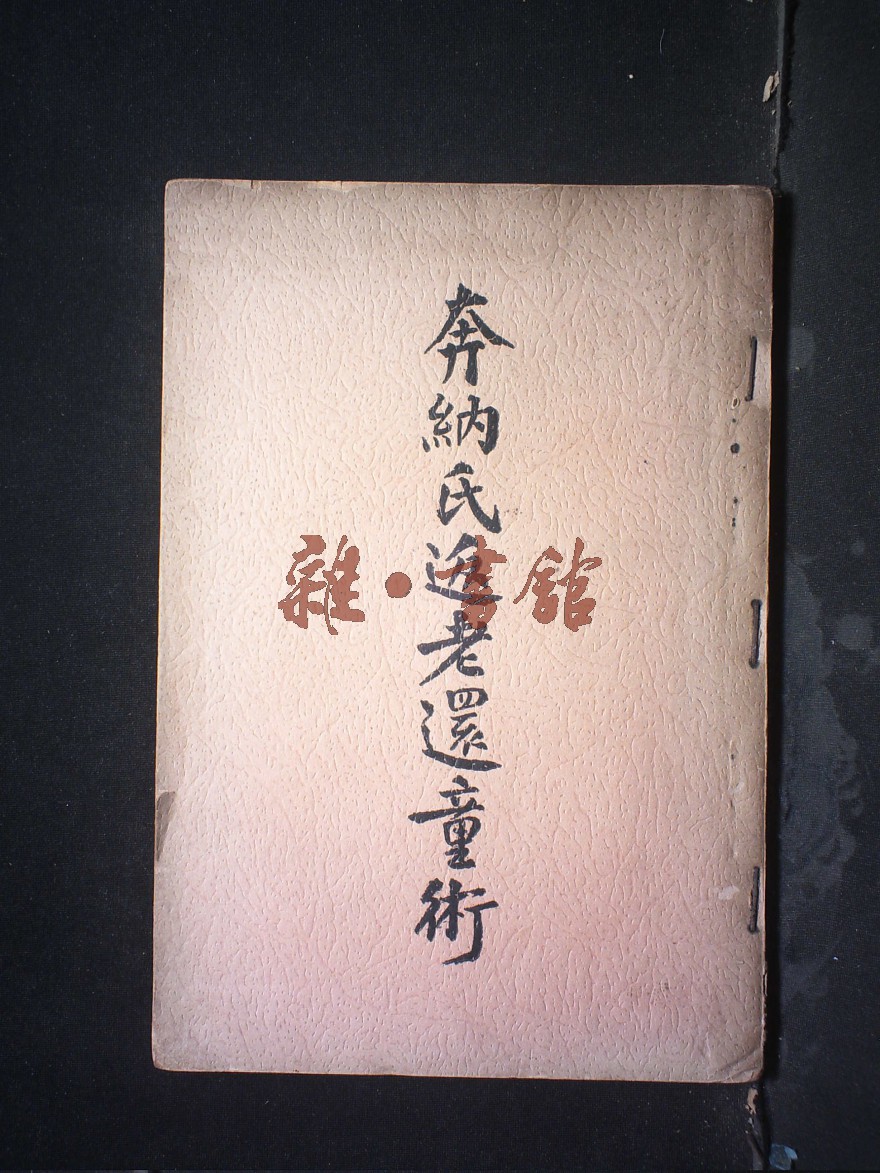 奔納氏返老還童術
雜·書館